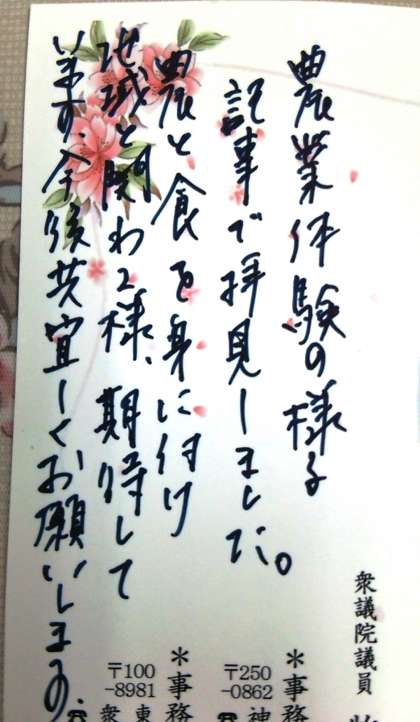 農業体験の様子
記事で拝見しました。
農と食を身に付け
地域と関わる様、期待して
います。今後共宜しくお願いします。
衆議院議員
＊事務
〒250
-0862
神
＊事務
〒100
-8981
東
衆